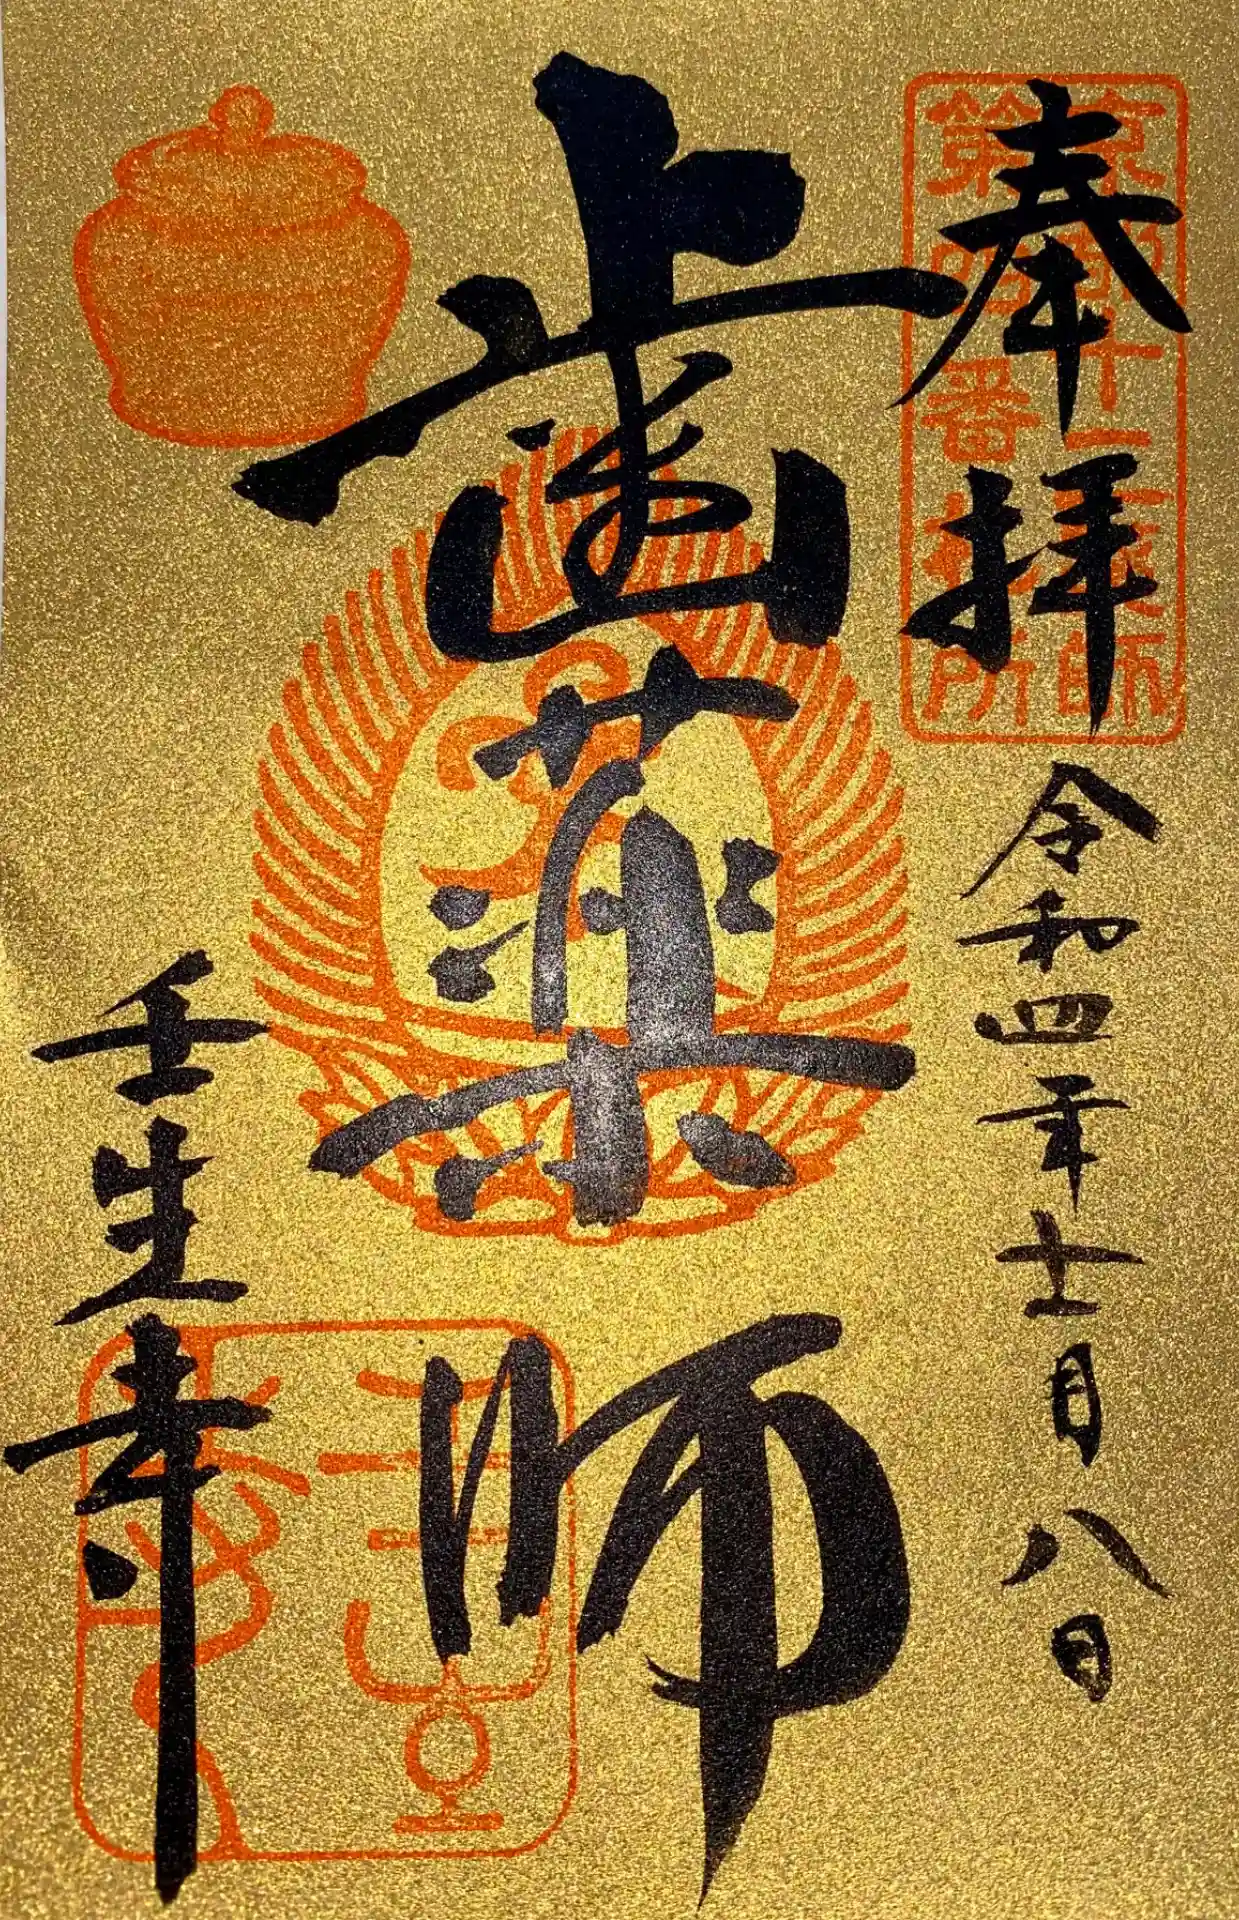 奉拝
京都十二薬師
第四番札所
令和四年十一月八日
歯薬師
壬生寺